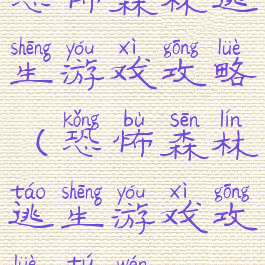 恐怖森林逃
shēng yóu xì gōng lüè
生游戏攻略
kǒng bù sēn lín
（恐怖森林
táo shēng yóu xì gōng
逃生游戏攻
lüè tú wén